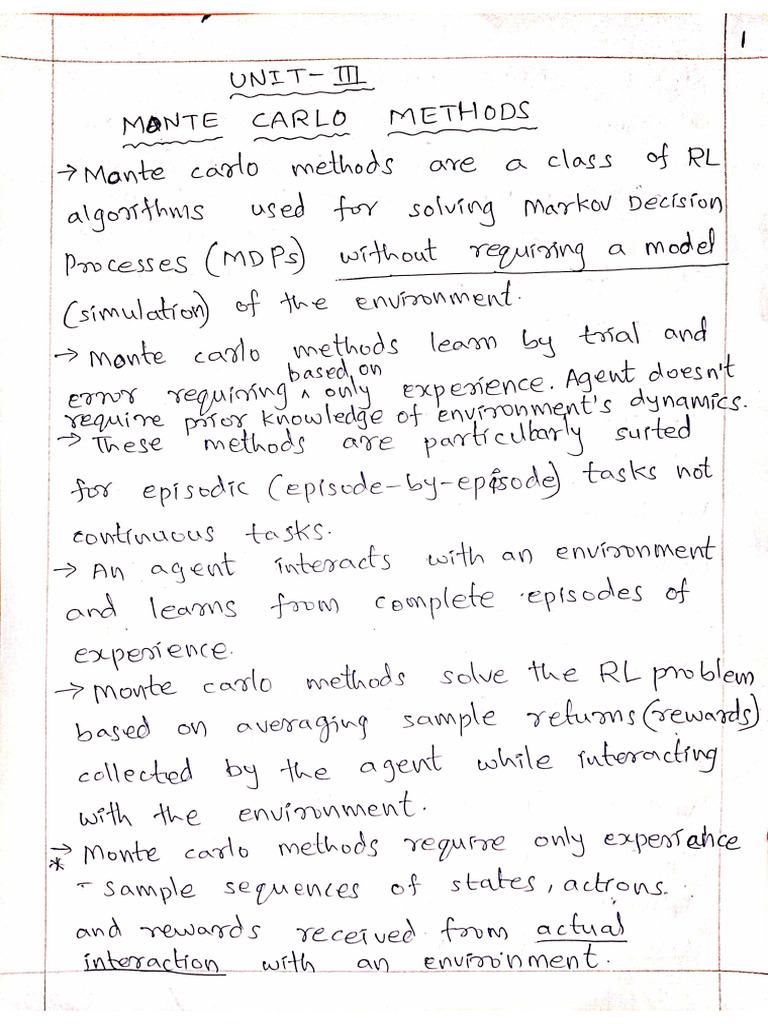 1
UNIT-III
MONTE CARLO METHODS
→ Monte carlo methods are a class of RL
algorithms used for solving Markov Decision
Processes (MDPs) without requiring a model
(simulation) of the environment.
→ Monte carlo methods learn by trial and
based on
error requiring ^ only experience. Agent doesn't
require prior knowledge of environment's dynamics.
→ These methods are particularly suited
for episodic (episode-by-episode) tasks not
continuous tasks.
→ An agent interacts with an environment
and learns from complete episodes of
experience.
→ Monte carlo methods solve the RL problem
based on averaging sample returns (rewards)
collected by the agent while interacting
with the environment.
→ Monte carlo methods require only experiance
* - sample sequences of states, actions.
and rewards received from actual
interaction with an environment.